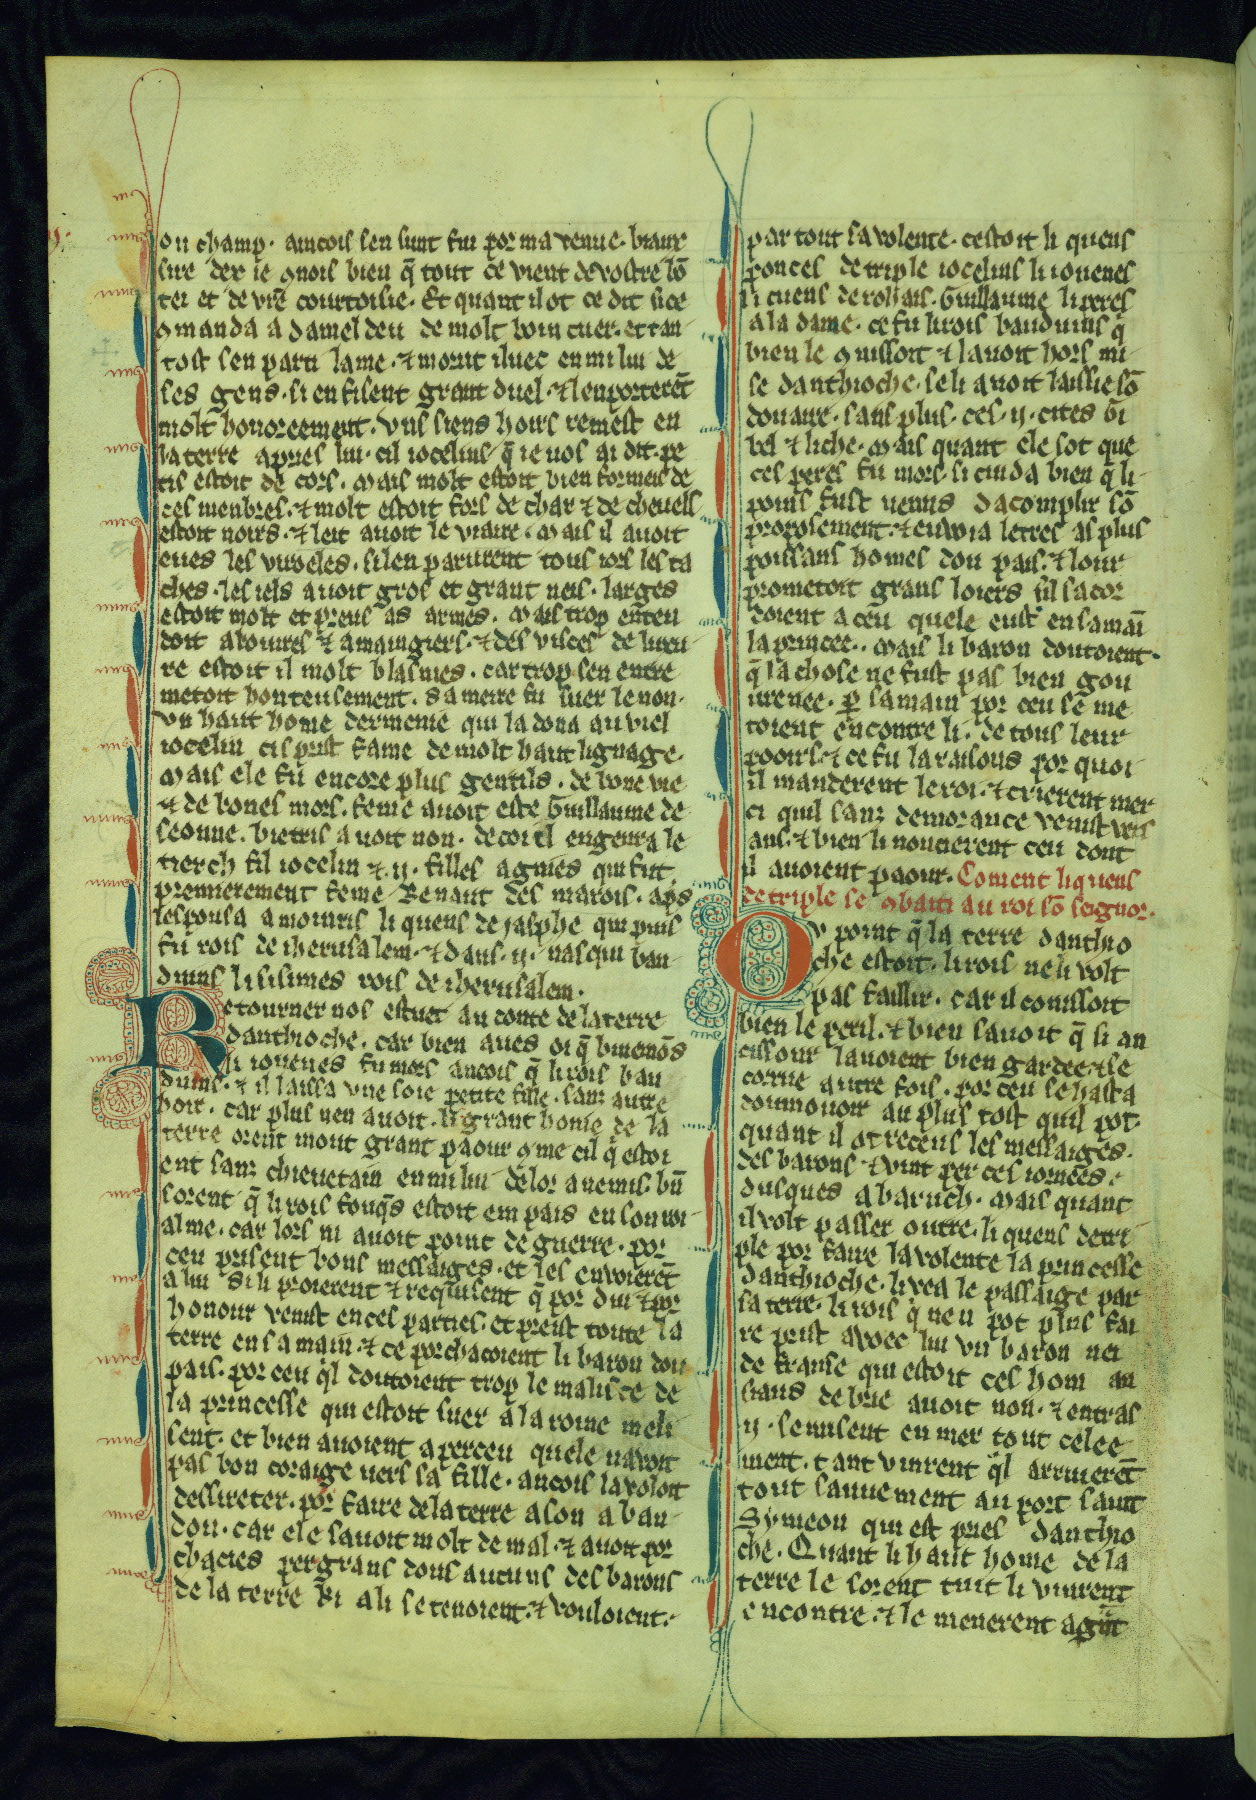 ou champ. aincois sen sunt fui por ma venue. biaux
sire dex ie 9nois bien q̃ tout ce vient de vostre bõ
tei et de vr̃e courtoisie. Et quant il ot ce dit si ce
9manda a damel deu de molt boin cuer. et tan
tost sen parti lame. ⁊ morut iluec en mi liu de
ses gens. si en fisent grant duel. ⁊ lenporterẽt
molt honoreement. vns siens hoirs remest en
la terre apries lui. cil iocelins q̃ ie uos ai dit. pe
tis estoit de cors. mais molt estoit bien formeis de
ces menbres. ⁊ molt estoit fors de char ⁊ de cheuels
estoit noirs. ⁊ leit auoit le viaire. mais il auoit
eues les viroeles. si len parurent tous iors les ta
ches. les iels auoit gros et grant neis. larges
estoit molt et preus as armes. mais trop enten
doit a boiures ⁊ a maingiers. ⁊ des visces de luxu
re estoit il molt blasmes. car trop sen entre
metoit honteusement. sa meire fu suer leuon.
vn haut home dermenie qui la dona au viel
iocelin cis prist fame de molt haut lignage.
mais ele fu encore plus gentils. de bone vie
⁊ de bones mors. feme auoit este Guillaume de
seonne. bietris auoit non. de coi il engenra le
tierch fil iocelin ⁊ .ij. filles agnies qui fut
premierement feme Renaut des marois. aps
lespousa amoiuris li quens de jasphe qui puis
fu rois de iherusalem. ⁊ dans .ij. nasqui bau
duins li sisimes rois de iherusalem.
Retourner nos estuet au conte de la terre
danthioche. car bien aues oi q̃ buiemõs
li iouenes fu mors ancois q̃ li rois bau
duins. ⁊ il laissa vne soie petite fille. sanz autre
hoir. car plus nen auoit. li grant home de la
terre orent mout grant paour 9me cil q̃ estoi
ent sanz chieuetain en mi liu de lor anemis. bñ
sorent q̃ li rois fouq̃s estoit em pais en son roi
alme. car lors ni auoit point de guerre. por
ceu prisent bons messaiges. et les enuoierẽt
a lui si li proierent ⁊ requisent q̃ por diu ⁊ por
honour venist en ces parties. et preist toute la
terre en sa main. ⁊ ce porchacoient li baron dou
pais. por ceu q̃l doutoient trop le malisce de
la princesse qui estoit suer a la roine meli
sent. et bien auoient aperceu quele nauoit
pas bon coraige uers sa fille. ancois la voloit
dessireter. por faire de la terre a son a ban
don. car ele sauoit molt de mal. ⁊ auoit por
chacies per grans dons aucuns des barons
de la terre ki a li se tenoient. ⁊ vouloient.
par tout sa volente. cestoit li quens
ponces de triple iocelins li iouenes
li cuens de rohais. Guillaume li peres
a la dame. ce fu li rois bauduins q̃
bien le 9nissoit ⁊ lauoit hors mi
se danthioche. se li auoit laissie sõ
douaire. sans plus. ces .ij. cites gi
bel ⁊ liche. mais quant ele sot que
ces peres fu mors. si cuida bien q̃ li
poins fust uenus dacomplir sõ
proposement. ⁊ enuoia letres as plus
poissans homes dou pais. ⁊ lour
prometoit grans loiers sil sacor
doient a ceu quele eust en sa mai
la princee. mais li baron doutoient.
q̃ la chose ne fust pas bien gou
urenee. ꝑ sa main por ceu se me
toient encontre li. de tous leur
pooirs. ⁊ ce fu la raisons por quoi
il manderent le roi. ⁊ crierent mer
ci quil sanz demorance venist vers
ans. ⁊ bien li noncierent ceu dont
il auoient paour. Coment li quens
de triple se 9bati au roi sõ seignor.
Ov point q̃ la terre danthio
che estoit. li rois ne li volt
pas faillir. car il conissoit
bien le peril. ⁊ bien sauoit q̃ si an
cissour lauoient bien gardee. ⁊ se
corue autre fois. por ceu se hasta
dou mouoir au plus tost quil pot.
quant il ot receus les messaiges.
des barons ⁊ vint per ces iornees.
dusques a baruch. mais quant
il volt passer outre. li quens de tri
ple por faire la volente la princesse
danthioche. li vea le passaige par
sa terre. li rois q̃ neu pot plus fai
re prist avoec lui vn baron nei
de franse qui estoit ces hom an
siaus de brie auoit non. ⁊ entras
.ij. se misent en mer tout celee
ment. tant vinrent q̃l arriuerẽt
tout sauuement au port saint
Symeon qui est pries danthio
che. Quant li haut home de la
terre le sorent tuit li vinrent
encontre. ⁊ le menerent a grãt